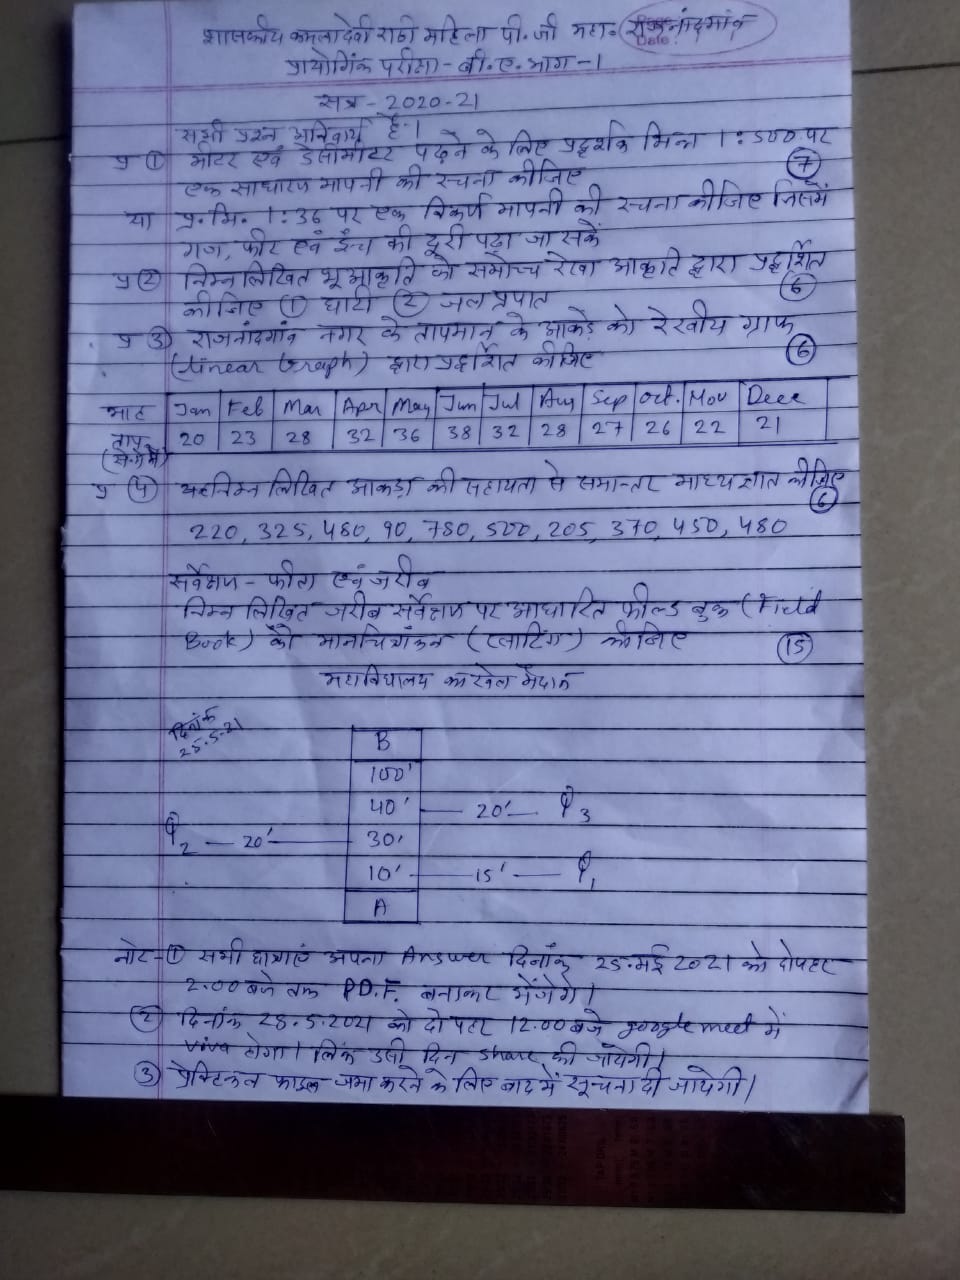 शासकीय कमलादेवी राठी महिला पी.जी महा. राजनांदगांव
Date:
प्रायोगिक परीक्षा - बी.ए. भाग-1
सत्र - 2020-21
सभी प्रश्न अनिवार्य है।
प्र ① मीटर एवं डेसीमीटर पढ़ने के लिए प्रदर्शक भिन्न 1:500 पर
एक साधारण मापनी की रचना कीजिए ⑦
या प्र.भि. 1:36 पर एक विकर्ण मापनी की रचना कीजिए जिसमें
गज, फीट एवं इंच की दूरी पढ़ा जा सकें
प्र ② निम्नलिखित भू आकृति को समोच्च रेखा आकृति द्वारा प्रदर्शित
कीजिए ① घाटी ② जल प्रपात ⑥
प्र ③ राजनांदगांव नगर के तापमान के आकड़े को रेखीय ग्राफ
(Linear Graph) द्वारा प्रदर्शित कीजिए ⑥
माह Jan Feb Mar Apr May Jun Jul Aug Sep Oct. Nov Dece
ताप. 20 23 28 32 36 38 32 28 27 26 22 21
(से.ग्रे में)
प्र ④ निम्न लिखित आकड़ों की सहायता से समान्तर माध्य ज्ञात कीजिए
⑥
220, 325, 460, 90, 780, 500, 205, 370, 450, 480
सर्वेक्षण - फीता एवं जरीब
निम्न लिखित जरीब सर्वेक्षण पर आधारित फील्ड बुक (Field
Book) को मानचित्रांकन (प्लाटिंग) कीजिए ⑮
महाविद्यालय का खेल मैदान
दिनांक
25.5.21
B
100'
40' 20' P3
P2 20' 30'
10' 15' P1
A
नोट- ① सभी छात्राएं अपना Answer दिनाँक 25 मई 2021 को दोपहर
2.00 बजे तक P.D.F. बनाकर भेजेंगे।
② दिनांक 28.5.2021 को दोपहर 12.00 बजे google meet में
viva होगा। लिंक उसी दिन share की जायेगी।
③ प्रेक्टिकल फाइल जमा करने के लिए बाद में सूचना दी जायेगी।